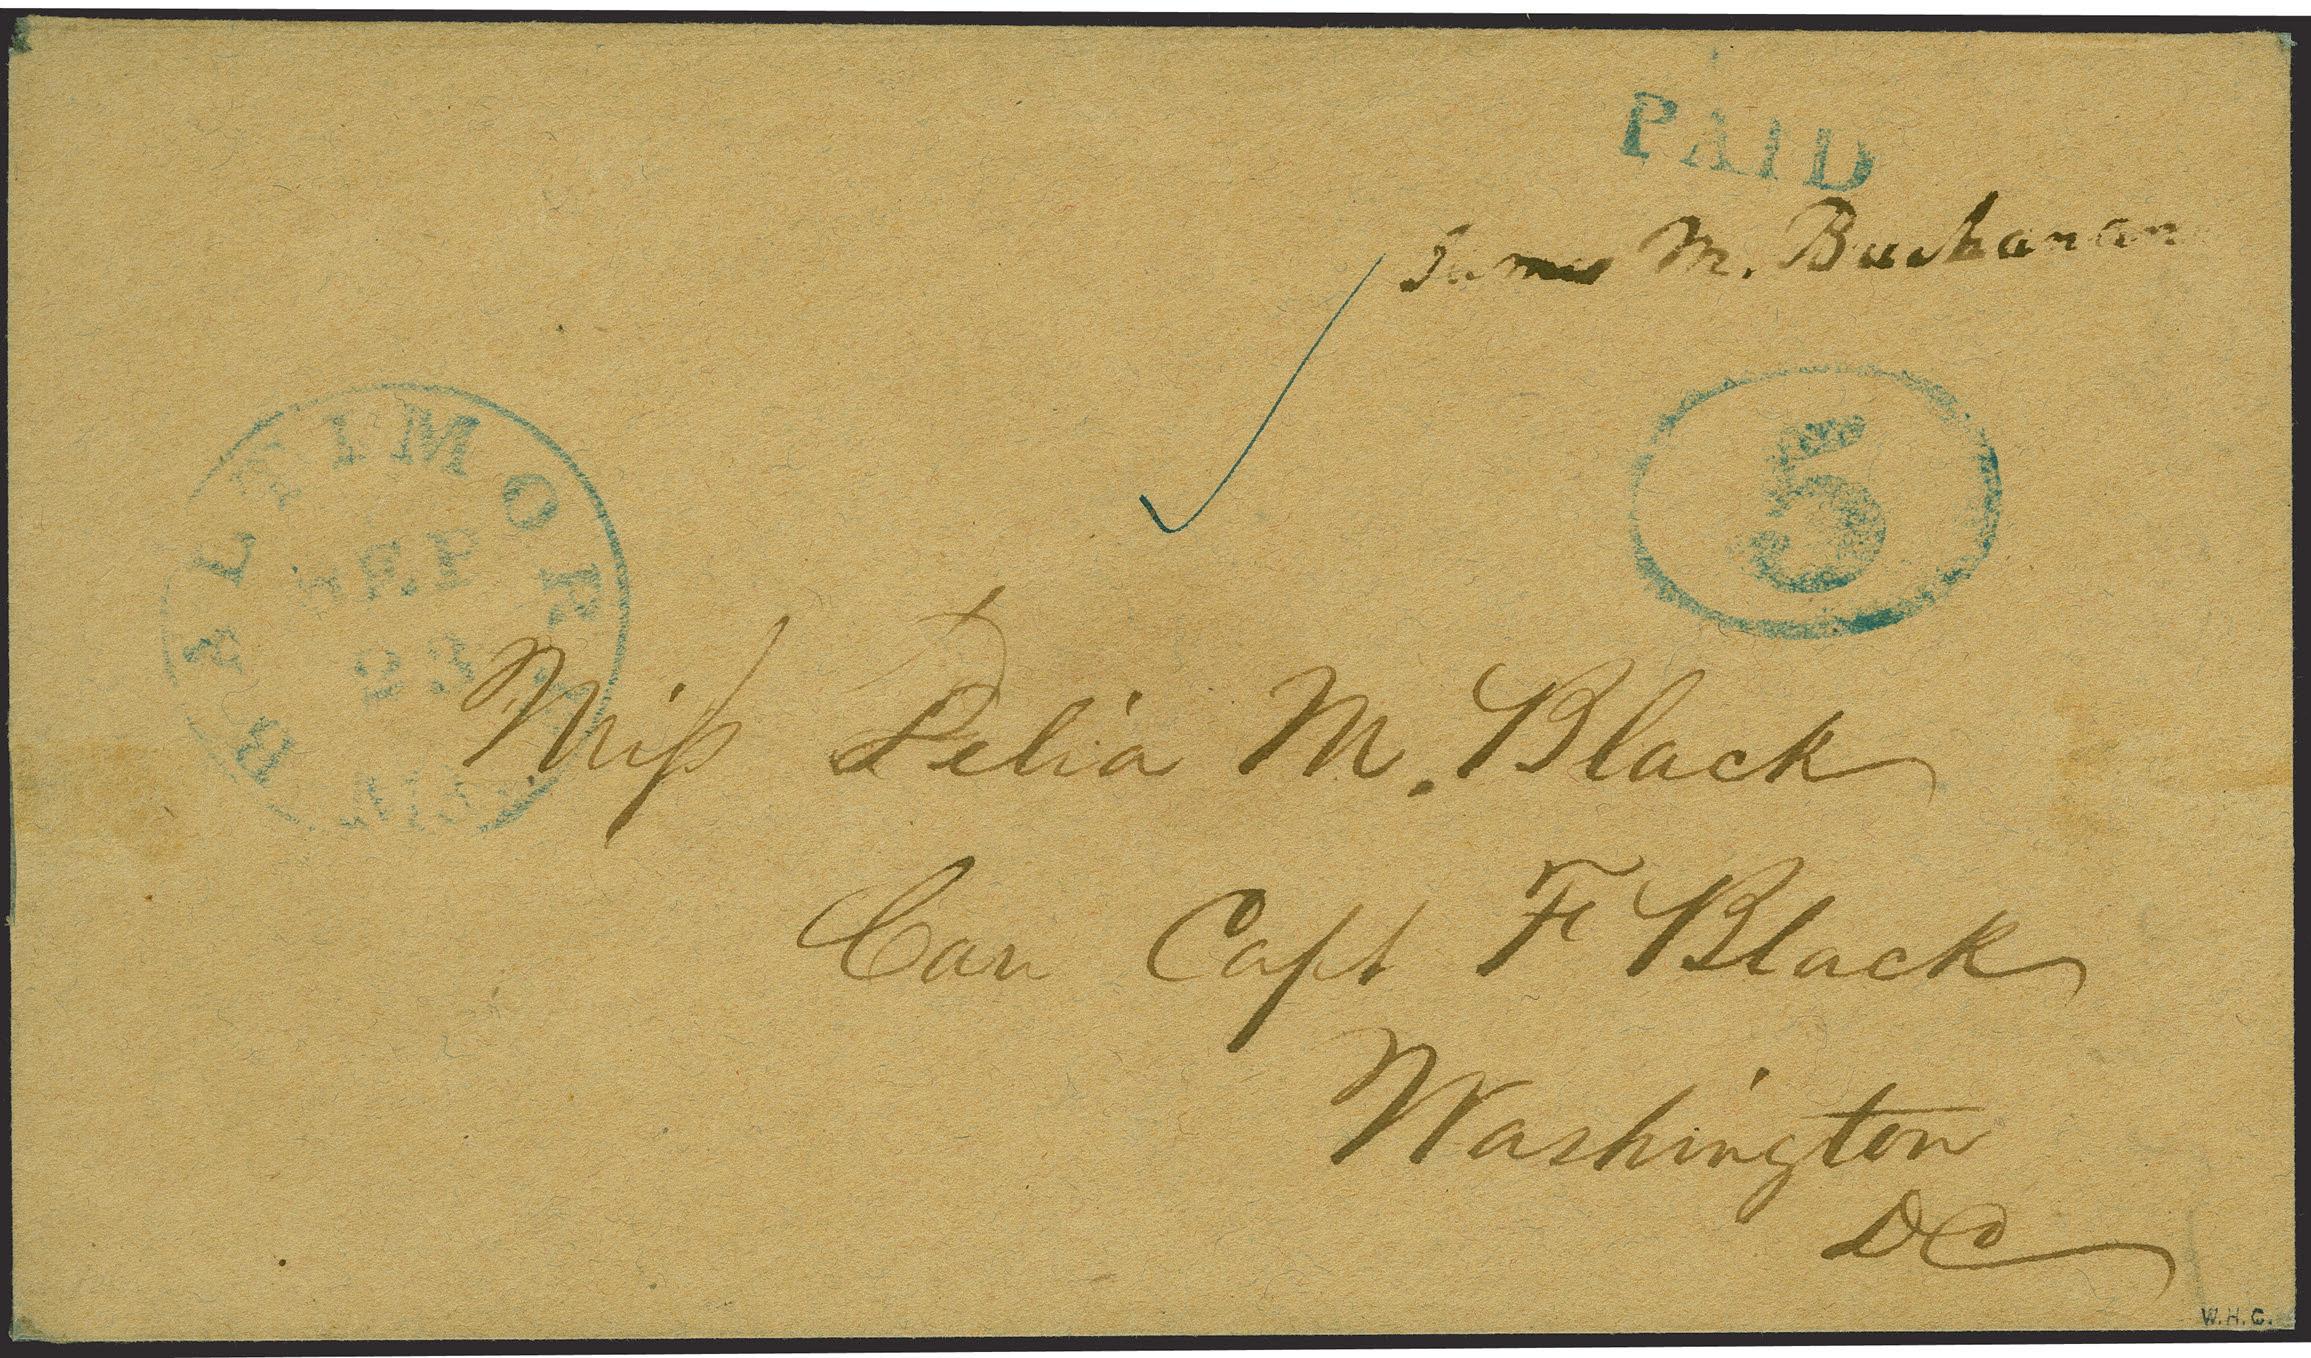 PAID
James M. Buchanan
5
BALTIMORE
SEP
23
Miss Delia M. Black
Care Capt F Black
Washington
DC
W.H.C.